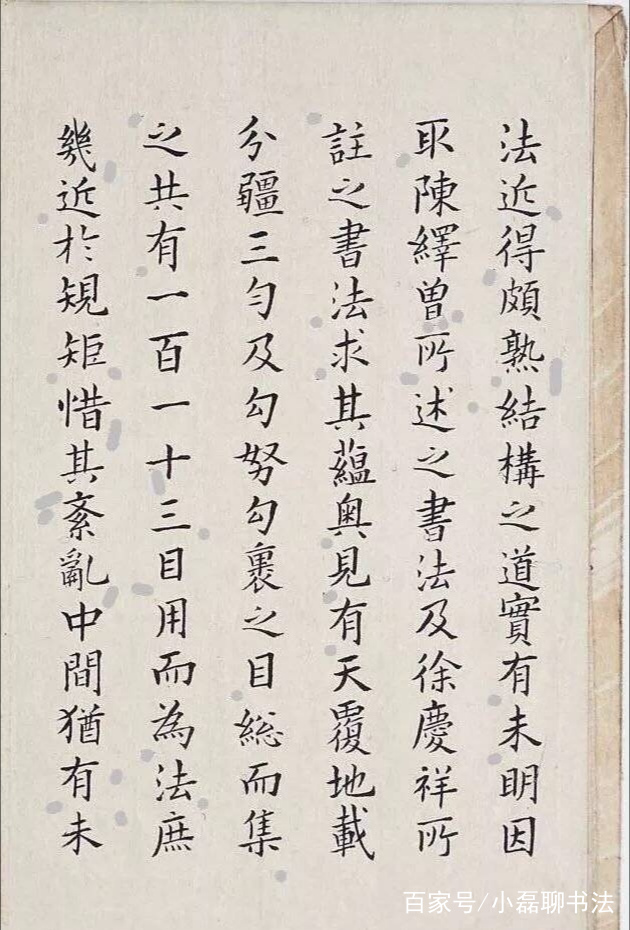 法近得頗熟結構之道實有未明因
取陳繹曾所述之書法及徐慶祥所
註之書法求其蘊奧見有天覆地載
分疆三勻及勾努勾裹之目總而集
之共有一百一十三目用而為法庶
幾近於規矩惜其紊亂中間猶有未
百家号/小磊聊书法